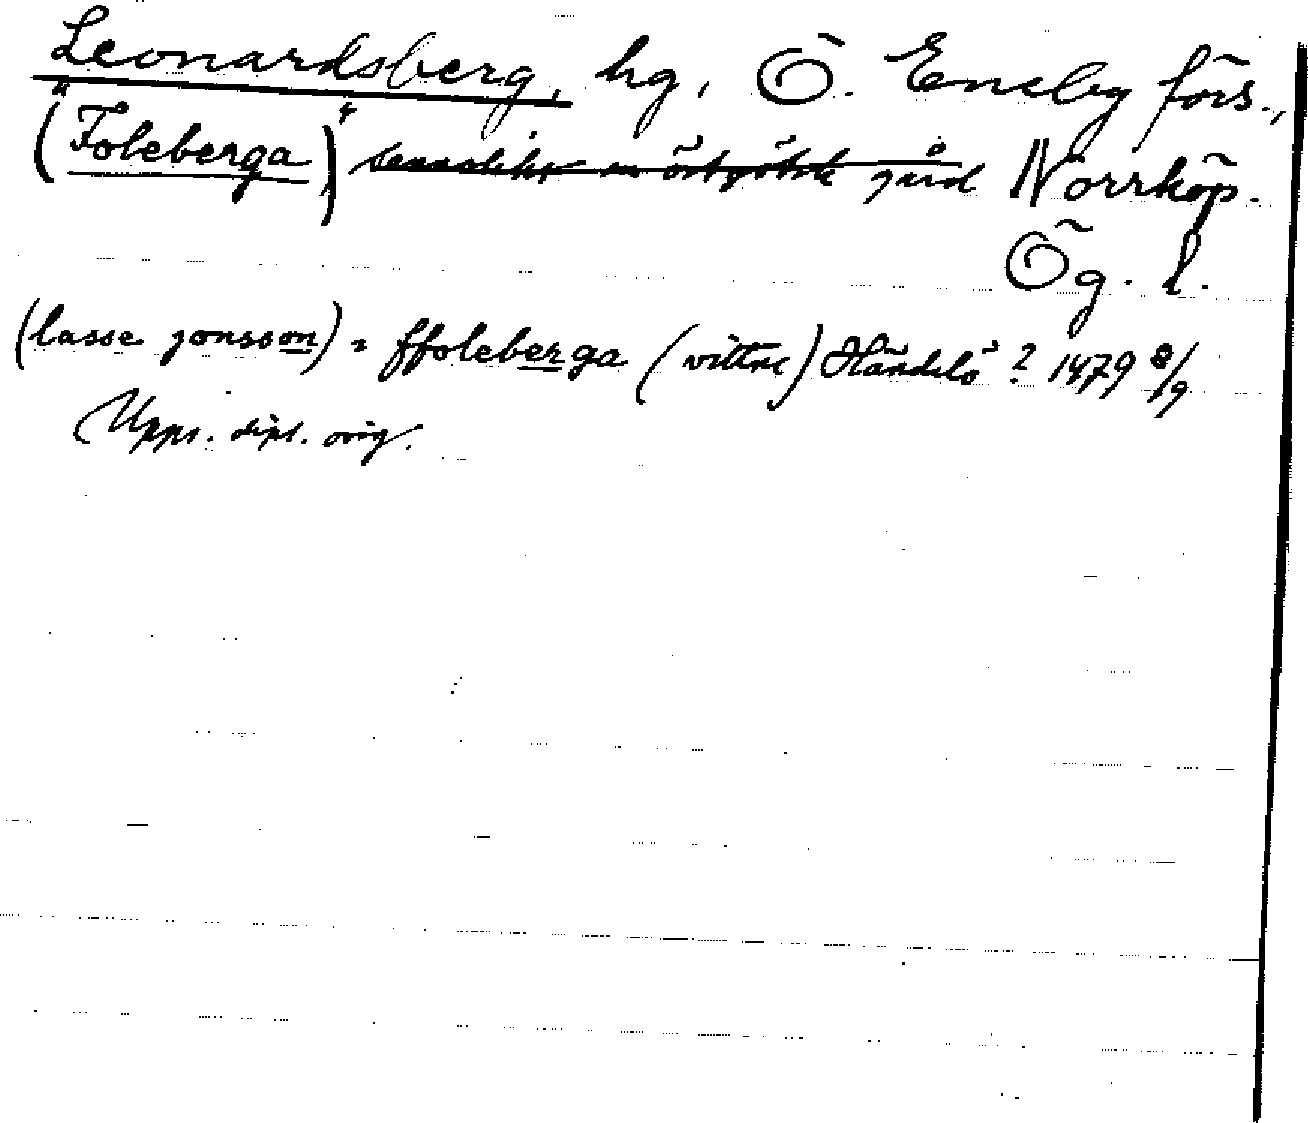 Leonardsberg, hg, Ö. Eneby förs.,
("Foleberga") sannolikt en östgötsk gård Norrköp.
Ög. l.
(lasse jonsson) i ffoleberga (vittne) Händelö? 1479 8/9
Upps. dipl. orig.